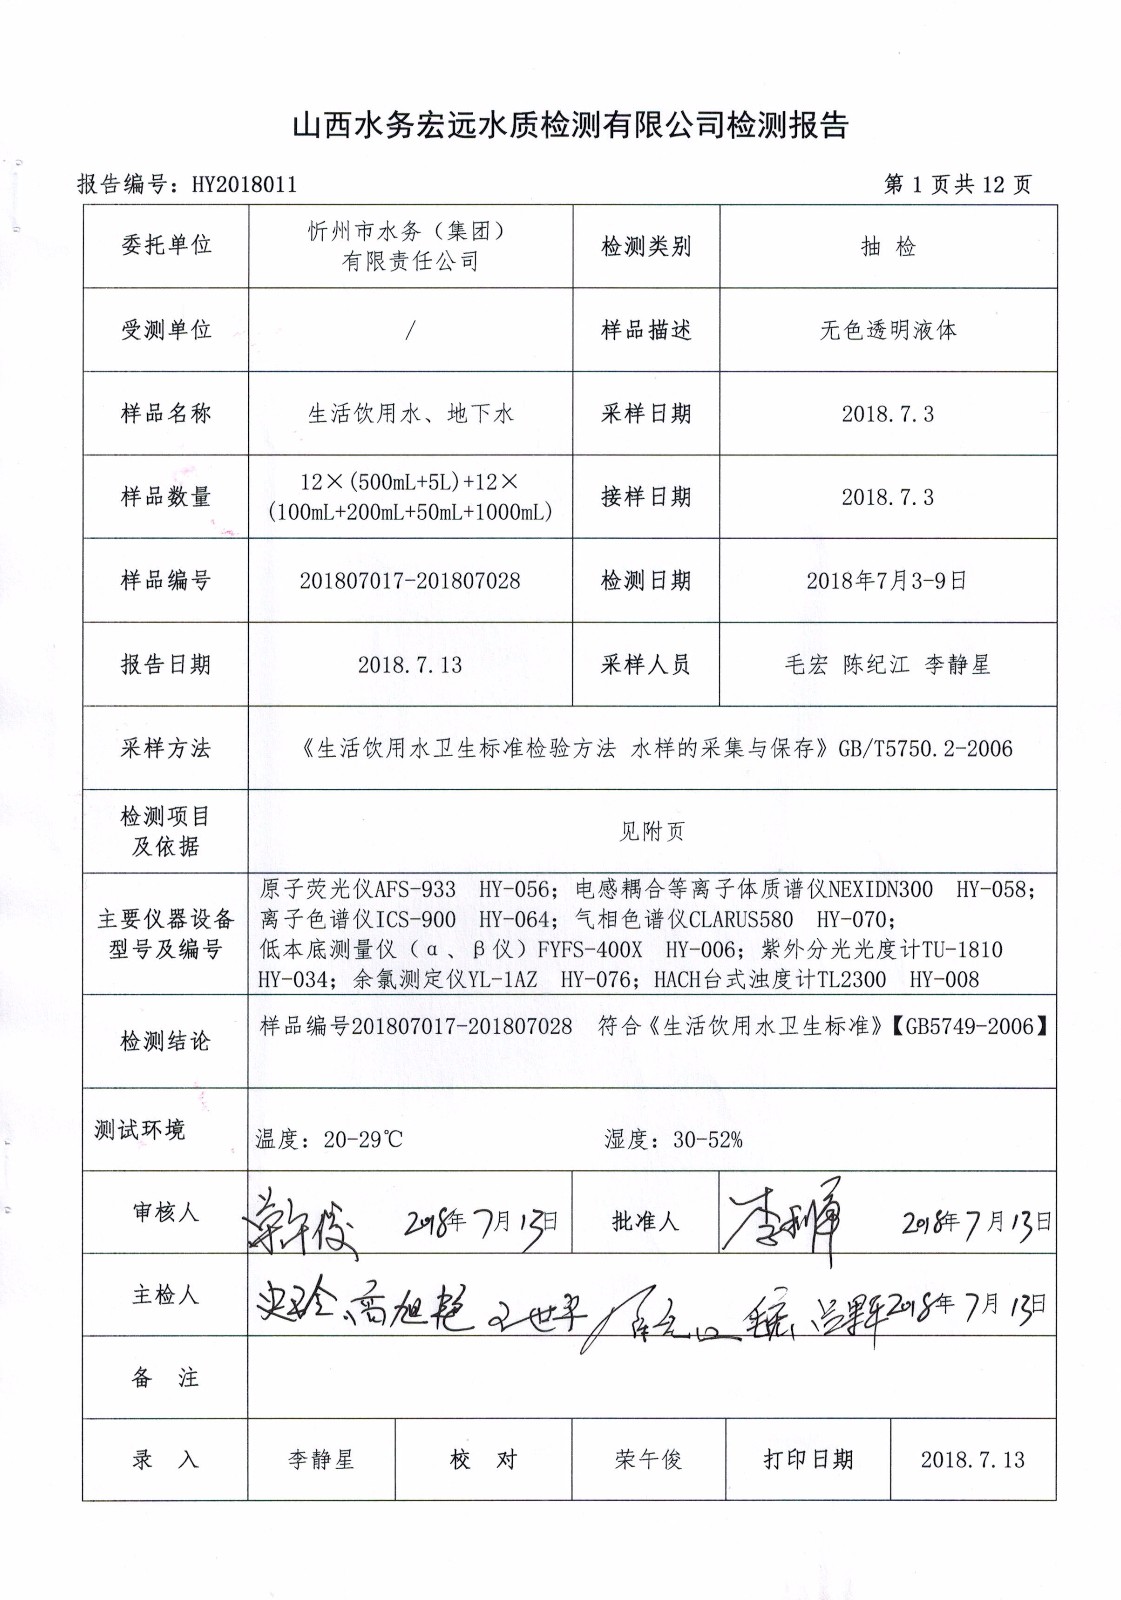 山西水务宏远水质检测有限公司检测报告
报告编号：HY2018011
第 1 页共 12 页
委托单位
忻州市水务（集团）
有限责任公司
检测类别
抽 检
受测单位
/
样品描述
无色透明液体
样品名称
生活饮用水、地下水
采样日期
2018.7.3
样品数量
12×(500mL+5L)+12×
(100mL+200mL+50mL+1000mL)
接样日期
2018.7.3
样品编号
201807017-201807028
检测日期
2018年7月3-9日
报告日期
2018.7.13
采样人员
毛宏 陈纪江 李静星
采样方法
《生活饮用水卫生标准检验方法 水样的采集与保存》GB/T5750.2-2006
检测项目
及依据
见附页
主要仪器设备
型号及编号
原子荧光仪AFS-933 HY-056；电感耦合等离子体质谱仪NEXIDN300 HY-058；
离子色谱仪ICS-900 HY-064；气相色谱仪CLARUS580 HY-070；
低本底测量仪（α、β仪）FYFS-400X HY-006；紫外分光光度计TU-1810
HY-034；余氯测定仪YL-1AZ HY-076；HACH台式浊度计TL2300 HY-008
检测结论
样品编号201807017-201807028 符合《生活饮用水卫生标准》【GB5749-2006】
测试环境
温度：20-29℃ 湿度：30-52%
审核人
荣午俊 2018年7月13日
批准人
2018年7月13日
主检人
高旭艳 王世平 2018年7月13日
备 注
录 入
李静星
校 对
荣午俊
打印日期
2018.7.13